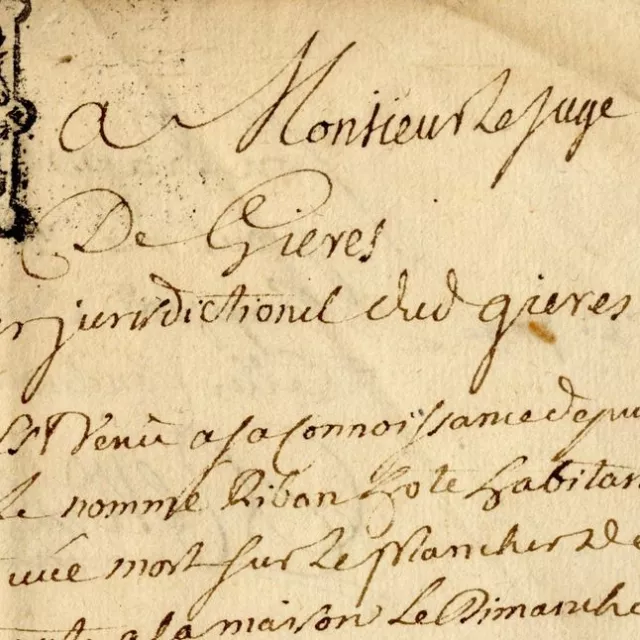 a Monsieur Le Juge
De Gieres
jurisdictionel dud gieres
Venu a sa Connoissance depui
le nommé Riban hote habitan
mort sur Le plancher de
a la maison Le Dimanche